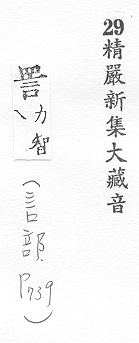 29精嚴新集大藏音
詈力智
（言部P.739）